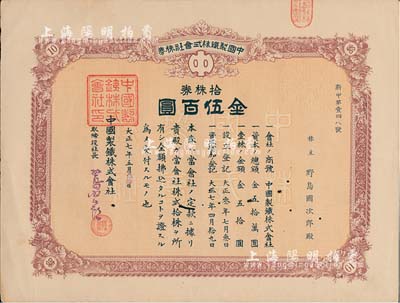 上海陽明拍賣
中國製鐵株式會社株券
10
拾株券
金伍百圓
新中第壹四八號
株主 野島國次郎殿
一會社ノ商號 中國製鐵株式會社
一資本ノ總額 金五拾萬圓
一壹株ノ金額 金五拾圓
一設立ノ登記
本券ハ當會社ノ定款ニ據リ
貴殿ガ當會社株式拾株ヲ所
有シ金額拂込タルコトヲ證スル
爲メ交付スルモノ也
大正七年五月
中國製鐵株式會社
取締役社長
中國製
鐵株式
會社印
上海陽明拍賣